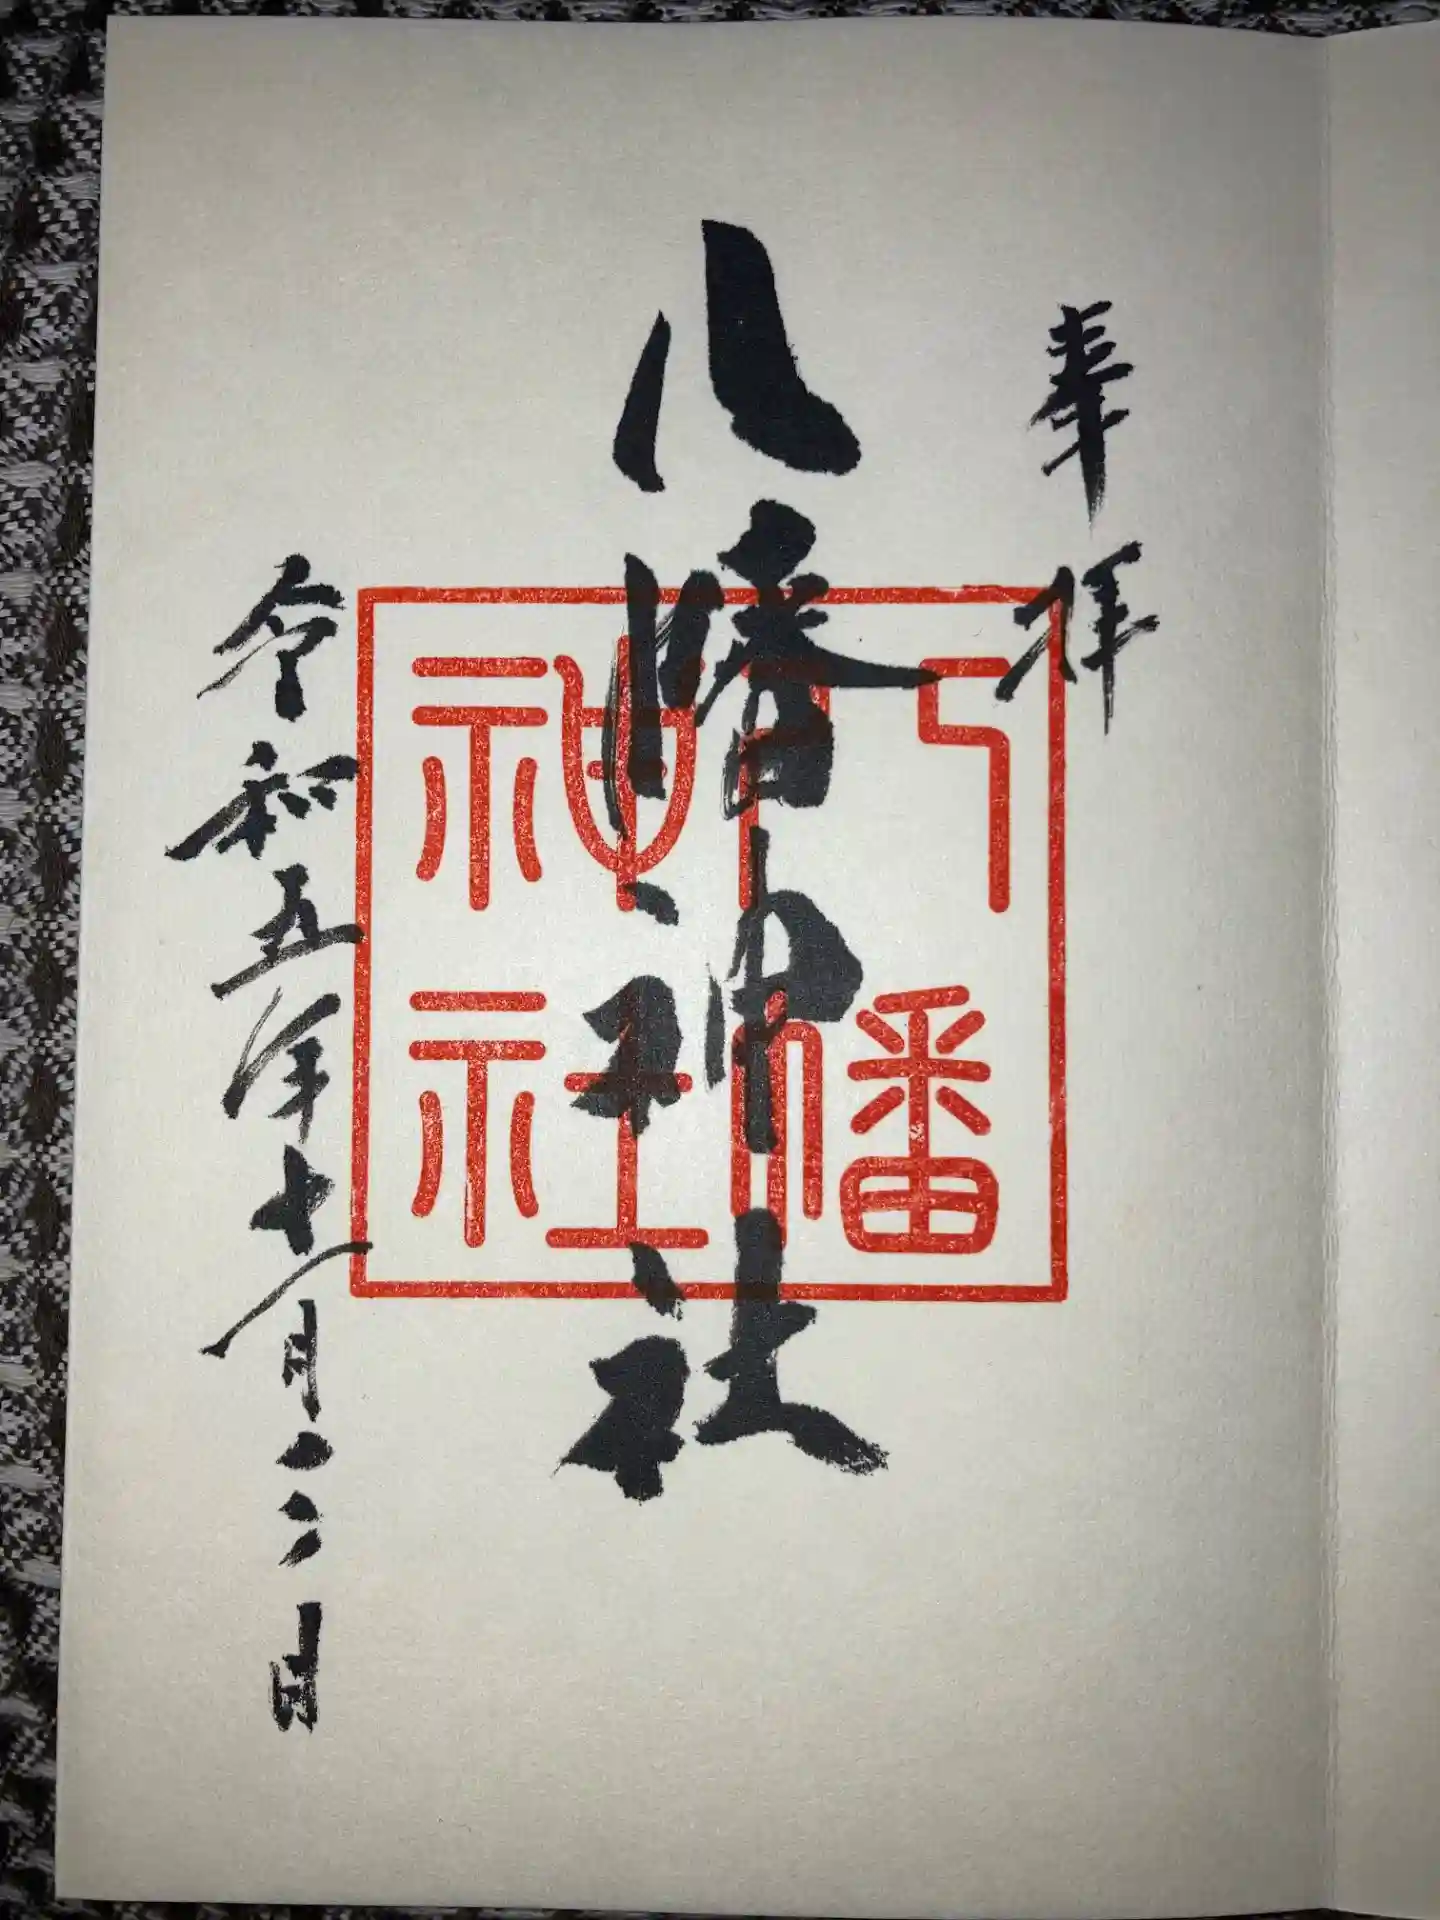 奉拝
八幡神社
令和五年十一月三日
八幡
神社